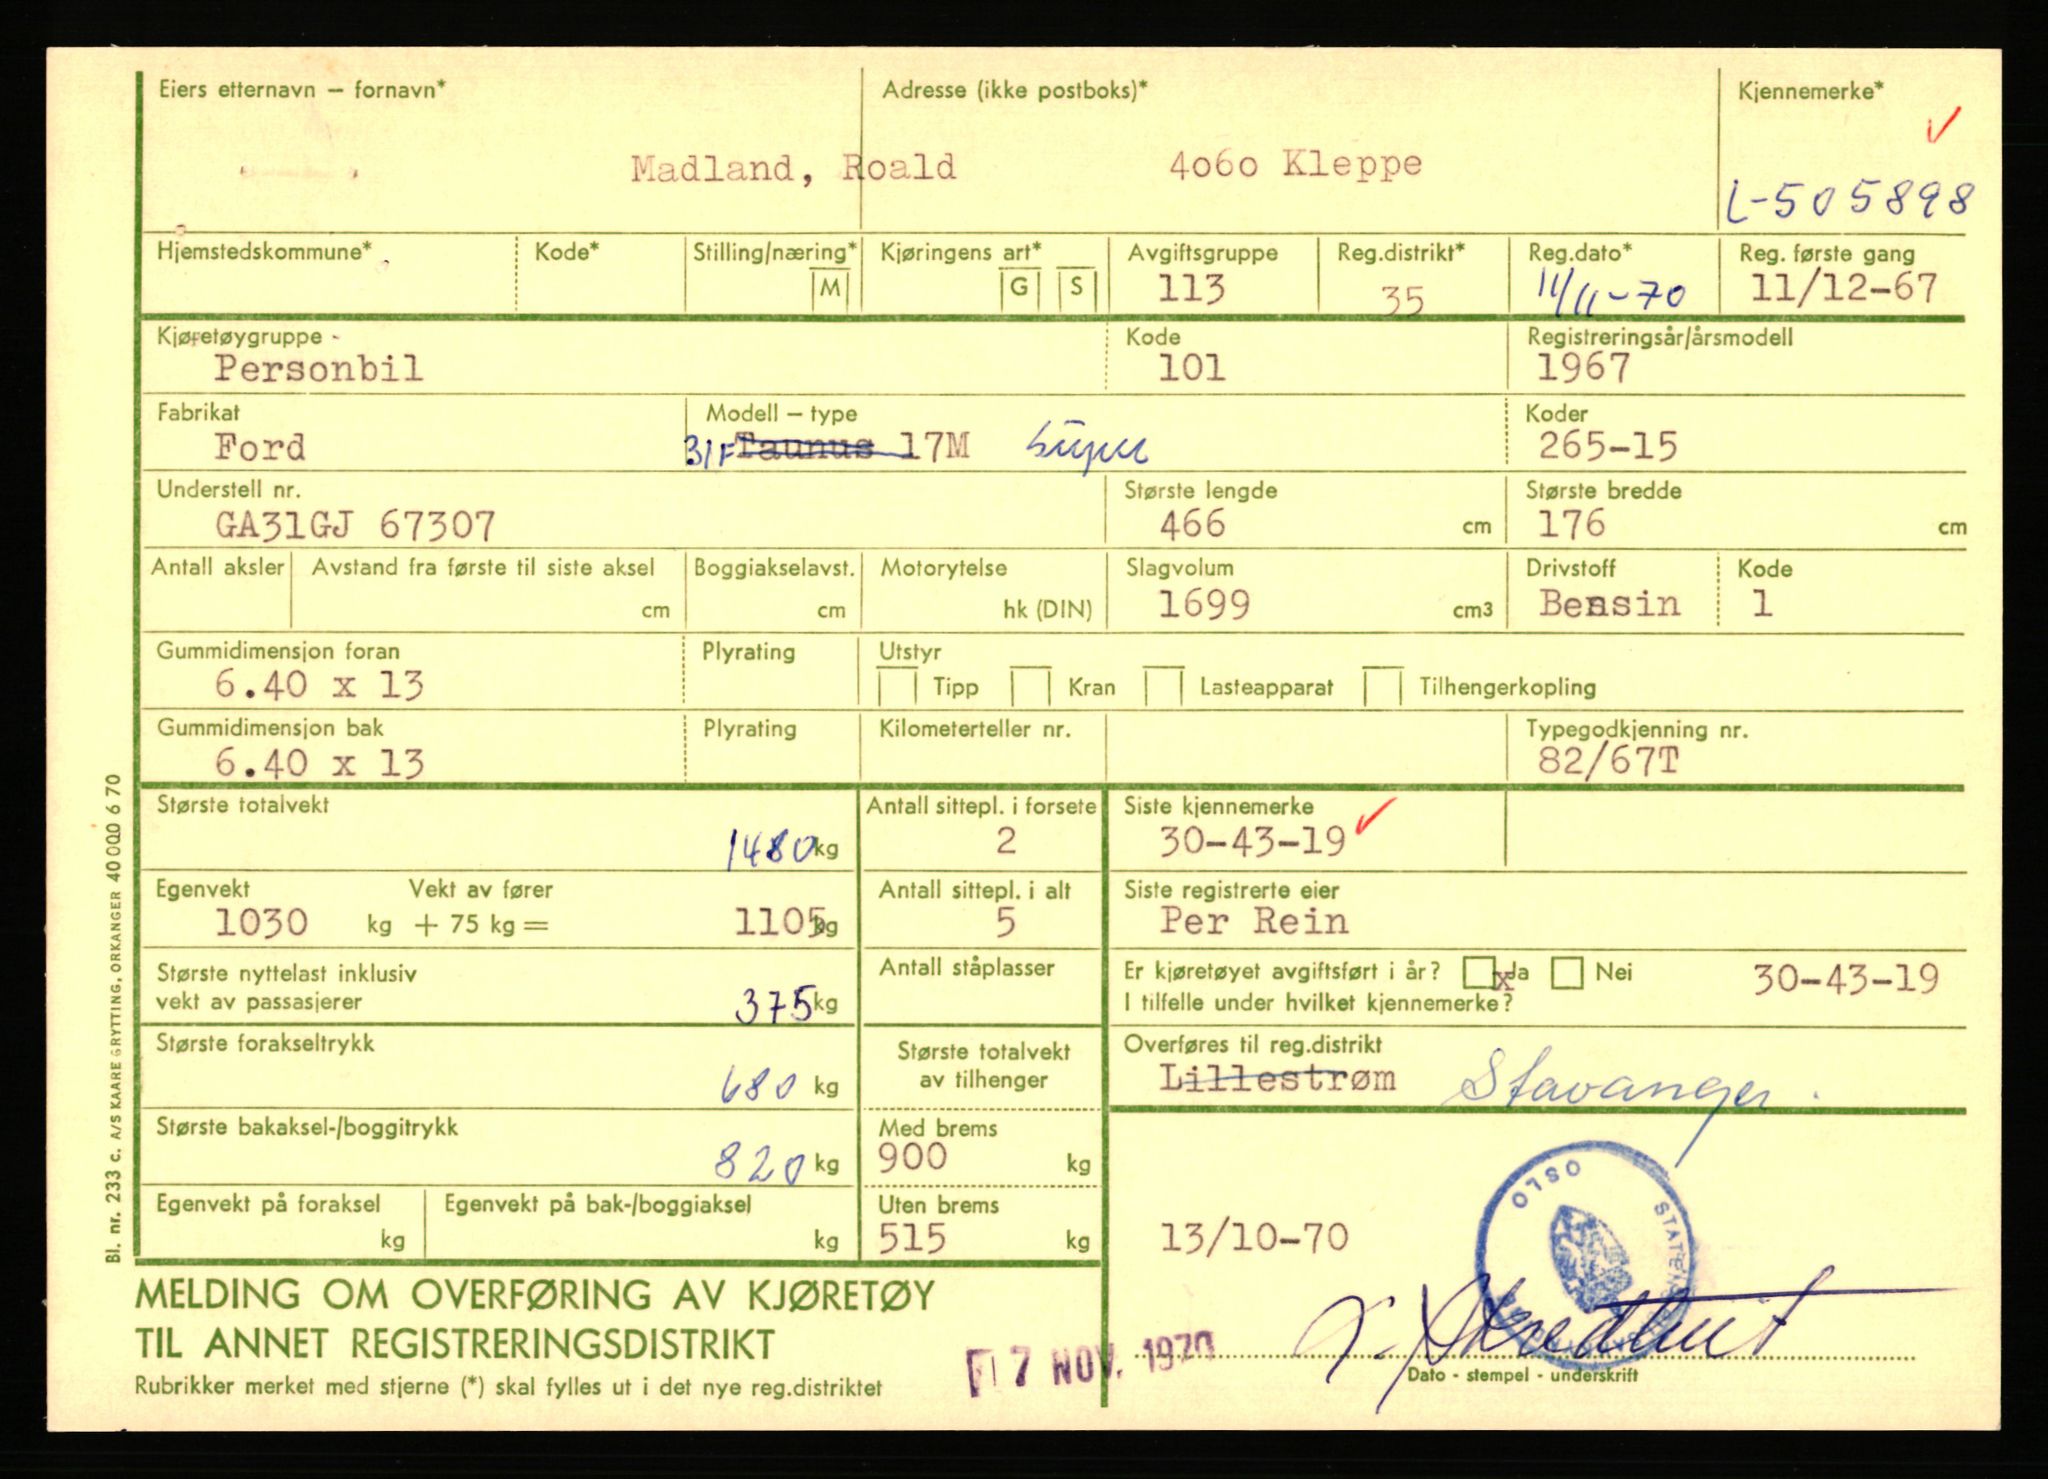 Eiers etternavn – fornavn* Adresse (ikke postboks)* Kjennemerke*
Madland, Roald 4060 Kleppe
L-505898
Hjemstedskommune* Kode* Stilling/næring* Kjøringens art* Avgiftsgruppe Reg.distrikt* Reg.dato* Reg. første gang
M G S 113 35 11/11-70 11/12-67
Kjøretøygruppe Kode Registreringsår/årsmodell
Personbil 101 1967
Fabrikat Modell – type Koder
Ford 31F Taunus 17M Super 265-15
Understell nr. Største lengde Største bredde
GA31GJ 67307 466 cm 176 cm
Antall aksler Avstand fra første til siste aksel Boggiakselavst. Motorytelse Slagvolum Drivstoff Kode
cm cm hk (DIN) 1699 cm3 Bensin 1
Gummidimensjon foran Plyrating Utstyr
6.40 x 13 Tipp Kran Lasteapparat Tilhengerkopling
Gummidimensjon bak Plyrating Kilometerteller nr. Typegodkjenning nr.
6.40 x 13 82/67T
Største totalvekt Antall sittepl. i forsete Siste kjennemerke
1480 kg 2 30-43-19
Egenvekt Vekt av fører Antall sittepl. i alt Siste registrerte eier
1030 kg + 75 kg = 1105 kg 5 Per Rein
Største nyttelast inklusiv Antall ståplasser Er kjøretøyet avgiftsført i år? x Ja Nei 30-43-19
vekt av passasjerer 375 kg I tilfelle under hvilket kjennemerke?
Største forakseltrykk Største totalvekt Overføres til reg.distrikt
680 kg av tilhenger Lillestrøm Stavanger.
Største bakaksel-/boggitrykk Med brems
820 kg 900 kg
OSLO
Egenvekt på foraksel Egenvekt på bak-/boggiaksel Uten brems
kg kg 515 kg 13/10-70
MELDING OM OVERFØRING AV KJØRETØY
TIL ANNET REGISTRERINGSDISTRIKT
7 NOV. 1970
Dato - stempel - underskrift
Rubrikker merket med stjerne (*) skal fylles ut i det nye reg.distriktet
Bl. nr. 233 c. A/S KAARE GRYTTING, ORKANGER 40 000 6 70